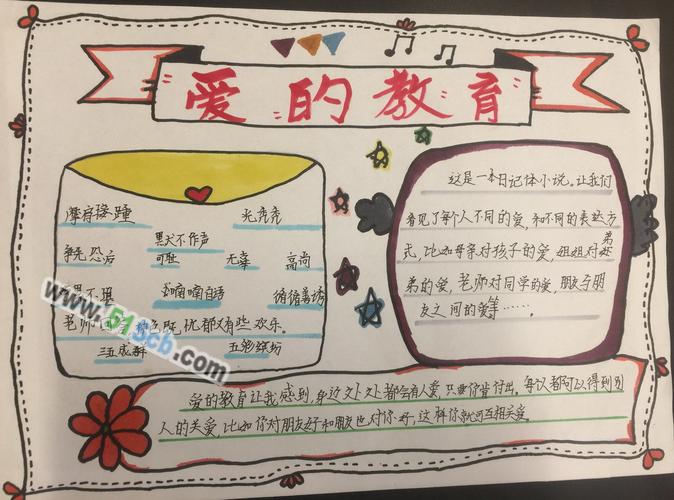 爱的教育
摩肩接踵 光秃秃
默不作声
争先恐后 可耻 无辜 高尚
喃喃自语 循循善诱
老师 既忧郁又有些欢乐。
三五成群 五彩缤纷
这是一本日记体小说。让我们
看见了每个人不同的爱,和不同的表达方
式,比如母亲对孩子的爱,姐姐对弟
弟的爱,老师对同学的爱,朋友与朋
友之间的爱等……。
爱的教育让我感到,身边处处都会有人爱,只要你肯付出。每次都可以得到别
人的关爱,比如你对朋友好和朋友也对你好,这样你就可互相关爱。
www.51scb.com